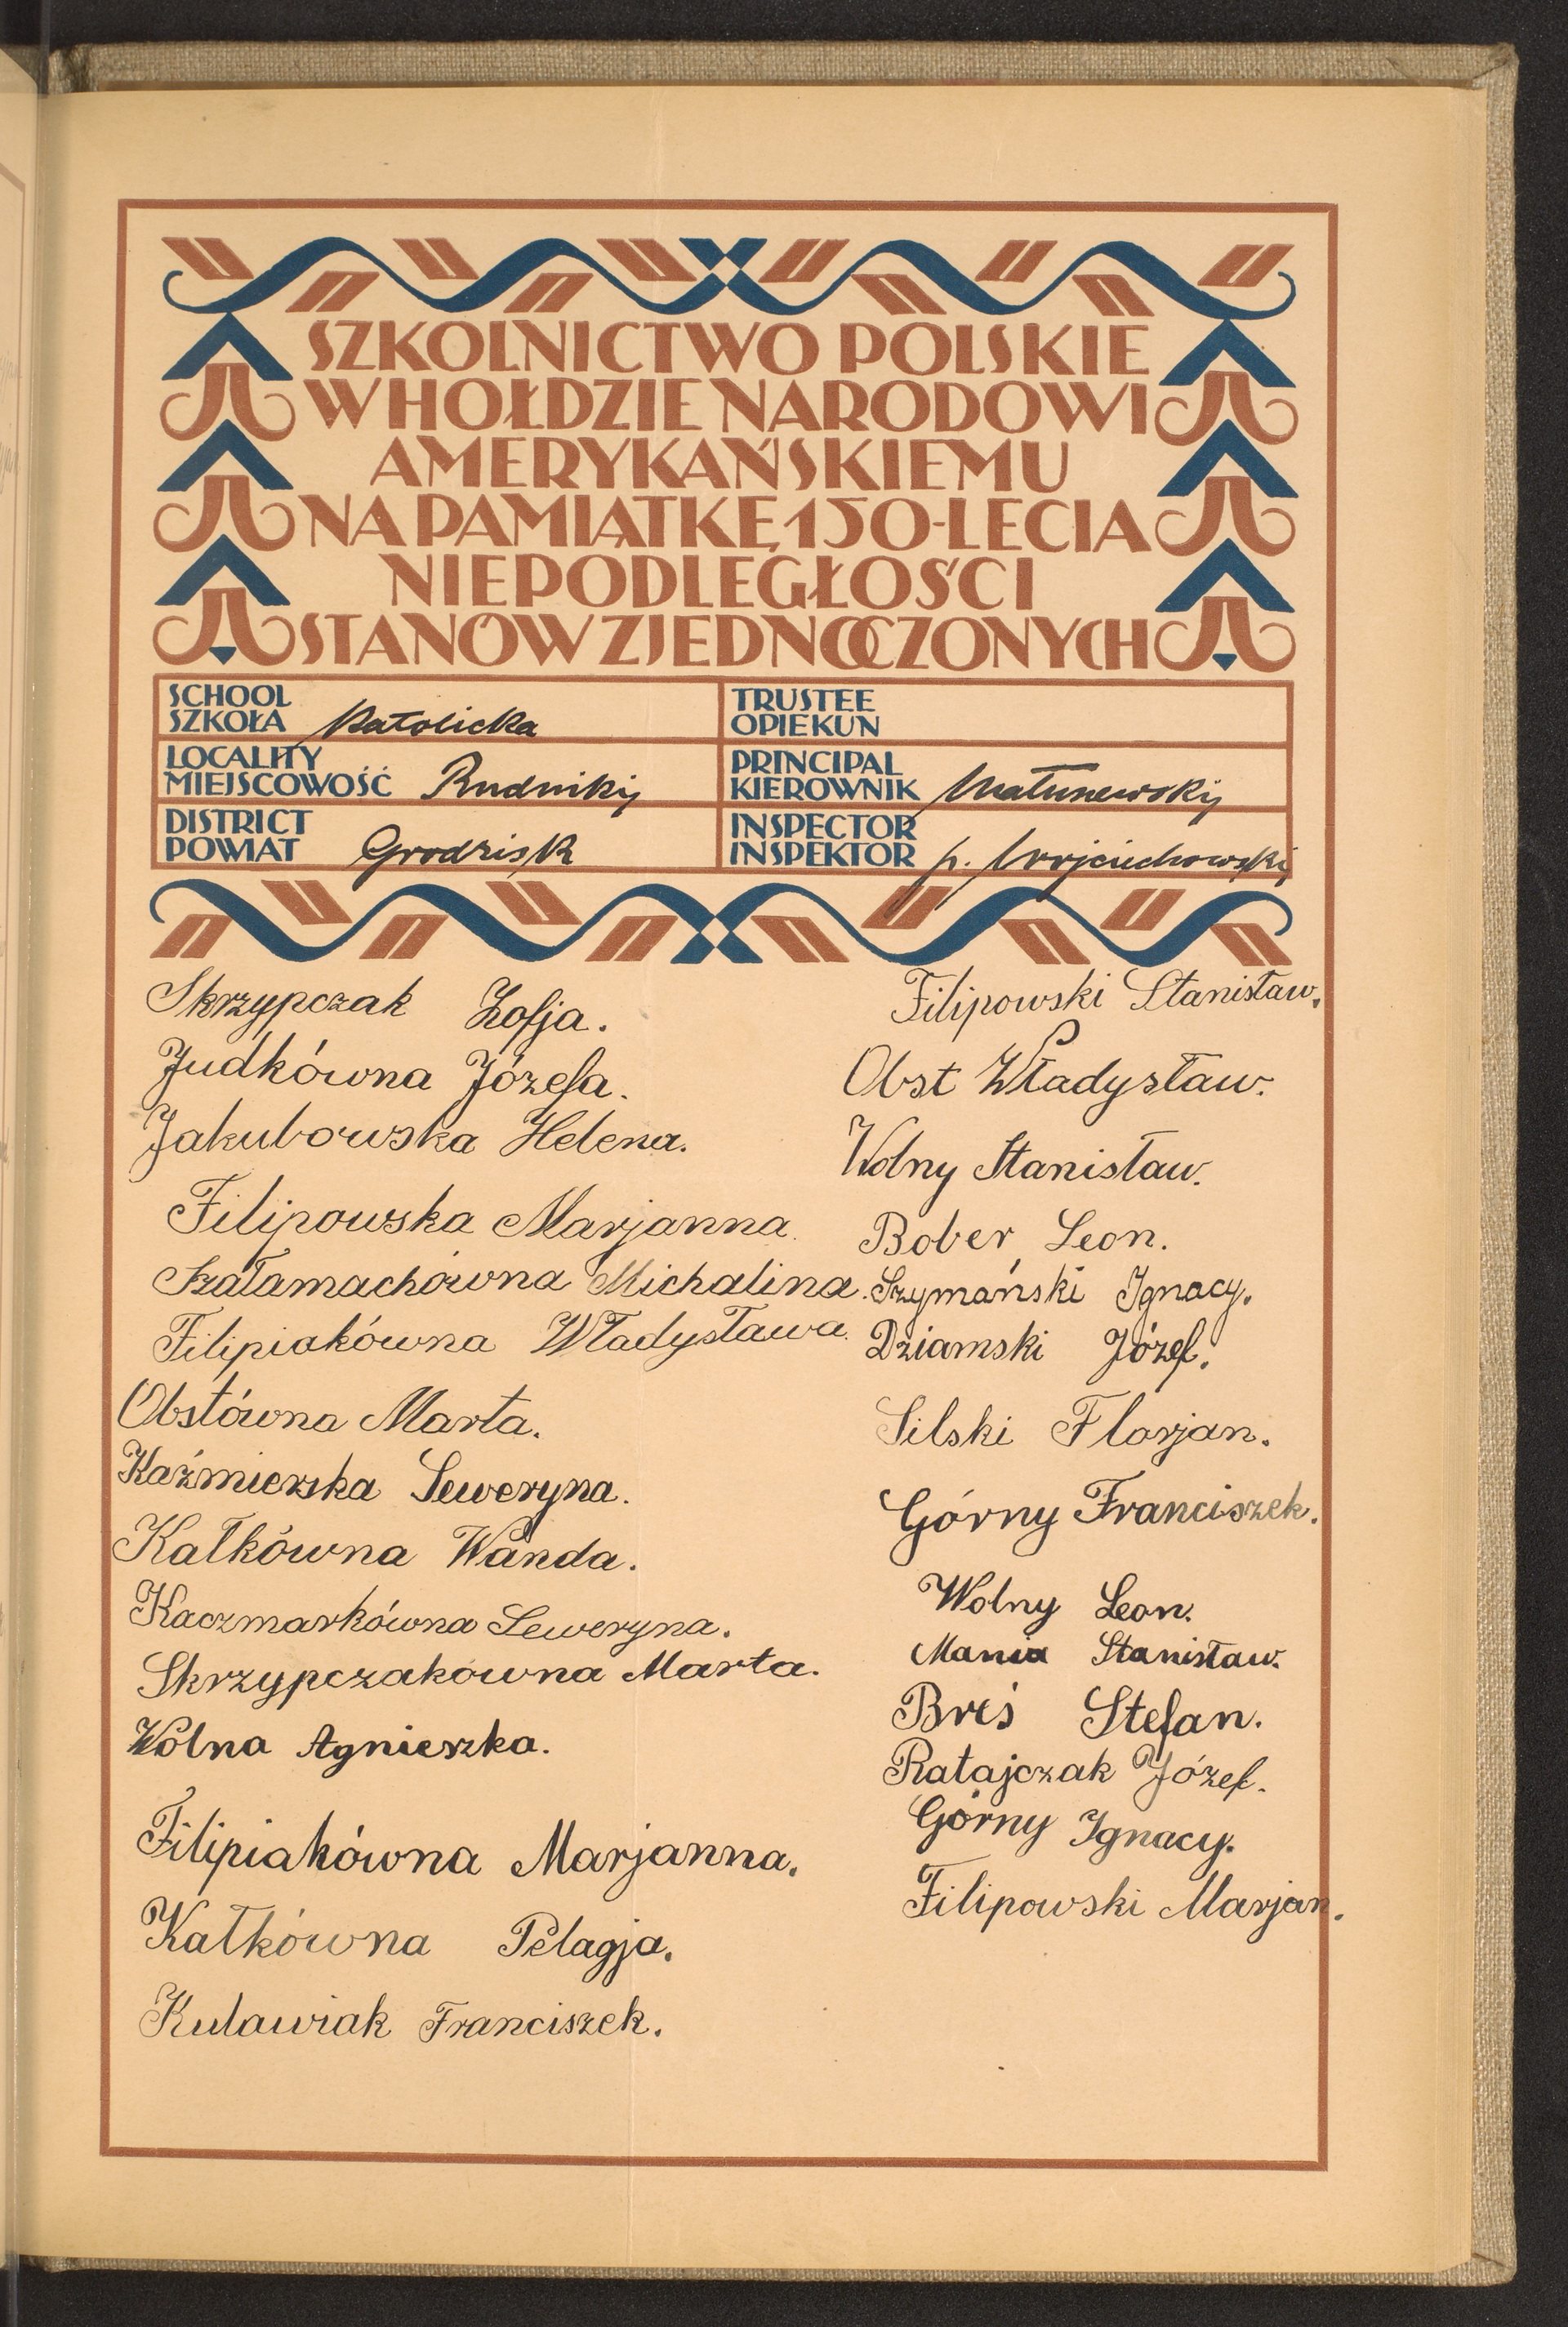 SZKOLNICTWO POLSKIE
W HOŁDZIE NARODOWI
AMERYKAŃSKIEMU
NA PAMIĄTKĘ 150-LECIA
NIEPODLEGŁOŚCI
STANÓW ZJEDNOCZONYCH
SCHOOL
SZKOŁA Katolicka
TRUSTEE
OPIEKUN
LOCALITY
MIEJSCOWOŚĆ Rudniki
PRINCIPAL
KIEROWNIK
DISTRICT
POWIAT Grodzisk
INSPECTOR
INSPEKTOR p. Wojciechowski
Skrzypczak Zofja.
Judkówna Józefa.
Jakubowska Helena.
Filipowska Marjanna.
Szałamachówna Michalina.
Filipiakówna Władysława.
Obstówna Marta.
Kaźmierska Seweryna.
Kałkówna Wanda.
Kaczmarkówna Seweryna.
Skrzypczakówna Marta.
Wolna Agnieszka.
Filipiakówna Marjanna.
Kałkówna Pelagja.
Kulawiak Franciszek.
Filipowski Stanisław.
Obst Władysław.
Wolny Stanisław.
Bober Leon.
Szymański Ignacy.
Dziamski Józef.
Silski Florjan.
Górny Franciszek.
Wolny Leon.
Mania Stanisław.
Breś Stefan.
Ratajczak Józef.
Górny Ignacy.
Filipowski Marjan.